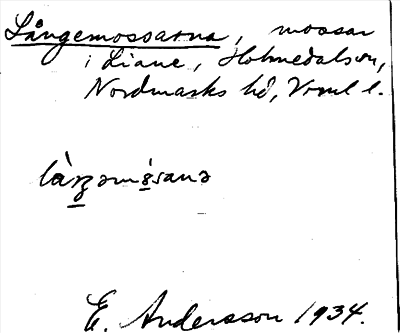 Långemossarna, mossar
i Liane, Holmedals sn,
Nordmarks hd, Vrml l.
là̀ŋəmɷ̀sanə
E. Andersson 1934.